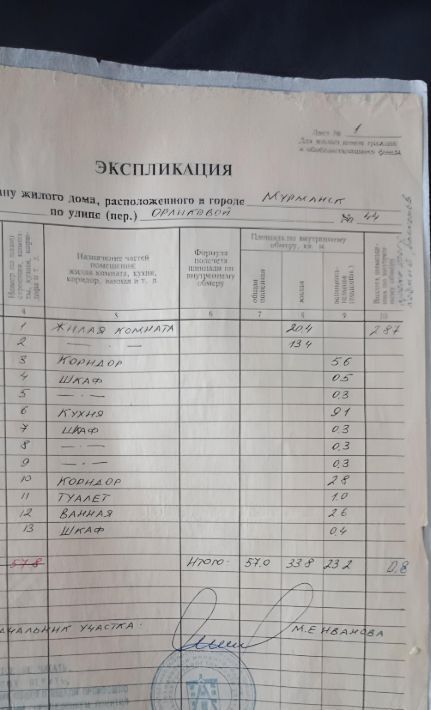 Лист № 1
Для жилых домов граждан
ЭКСПЛИКАЦИЯ
ану жилого дома, расположенного в городе Мурманск
по улице (пер.) Орликовой № 44
Назначение частей помещения: жилая комната, кухня, коридор, ванная и т. д.
Формула подсчета площади по внутреннему обмеру
Площадь по внутреннему обмеру, кв. м.
общая полезная
жилая
4 5 6 7 8 9 10
1 ЖИЛАЯ КОМНАТА 20.4 2.87
2 —·— 13.4
3 КОРИДОР 5.6
4 ШКАФ 0.5
5 —·— 0.3
6 КУХНЯ 9.1
7 ШКАФ 0.3
8 —·— 0.3
9 —·— 0.3
10 КОРИДОР 2.8
11 ТУАЛЕТ 1.0
12 ВАННАЯ 2.6
13 ШКАФ 0.4
57.8 ИТОГО: 57.0 33.8 23.2 0,8
АЧАЛЬНИК УЧАСТКА: М.Е ИВАНОВА